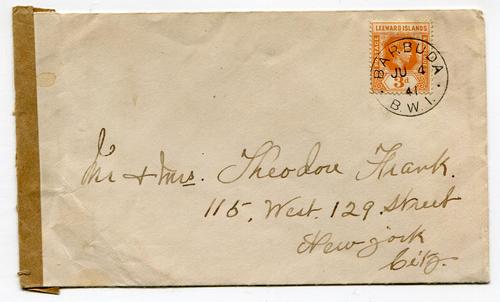 LEEWARD ISLANDS
POSTAGE
3d
BARBUDA
JU 4
41
B.W.I.
Mr & Mrs. Theodore Frank.
115, West. 129. Street
New york
City.